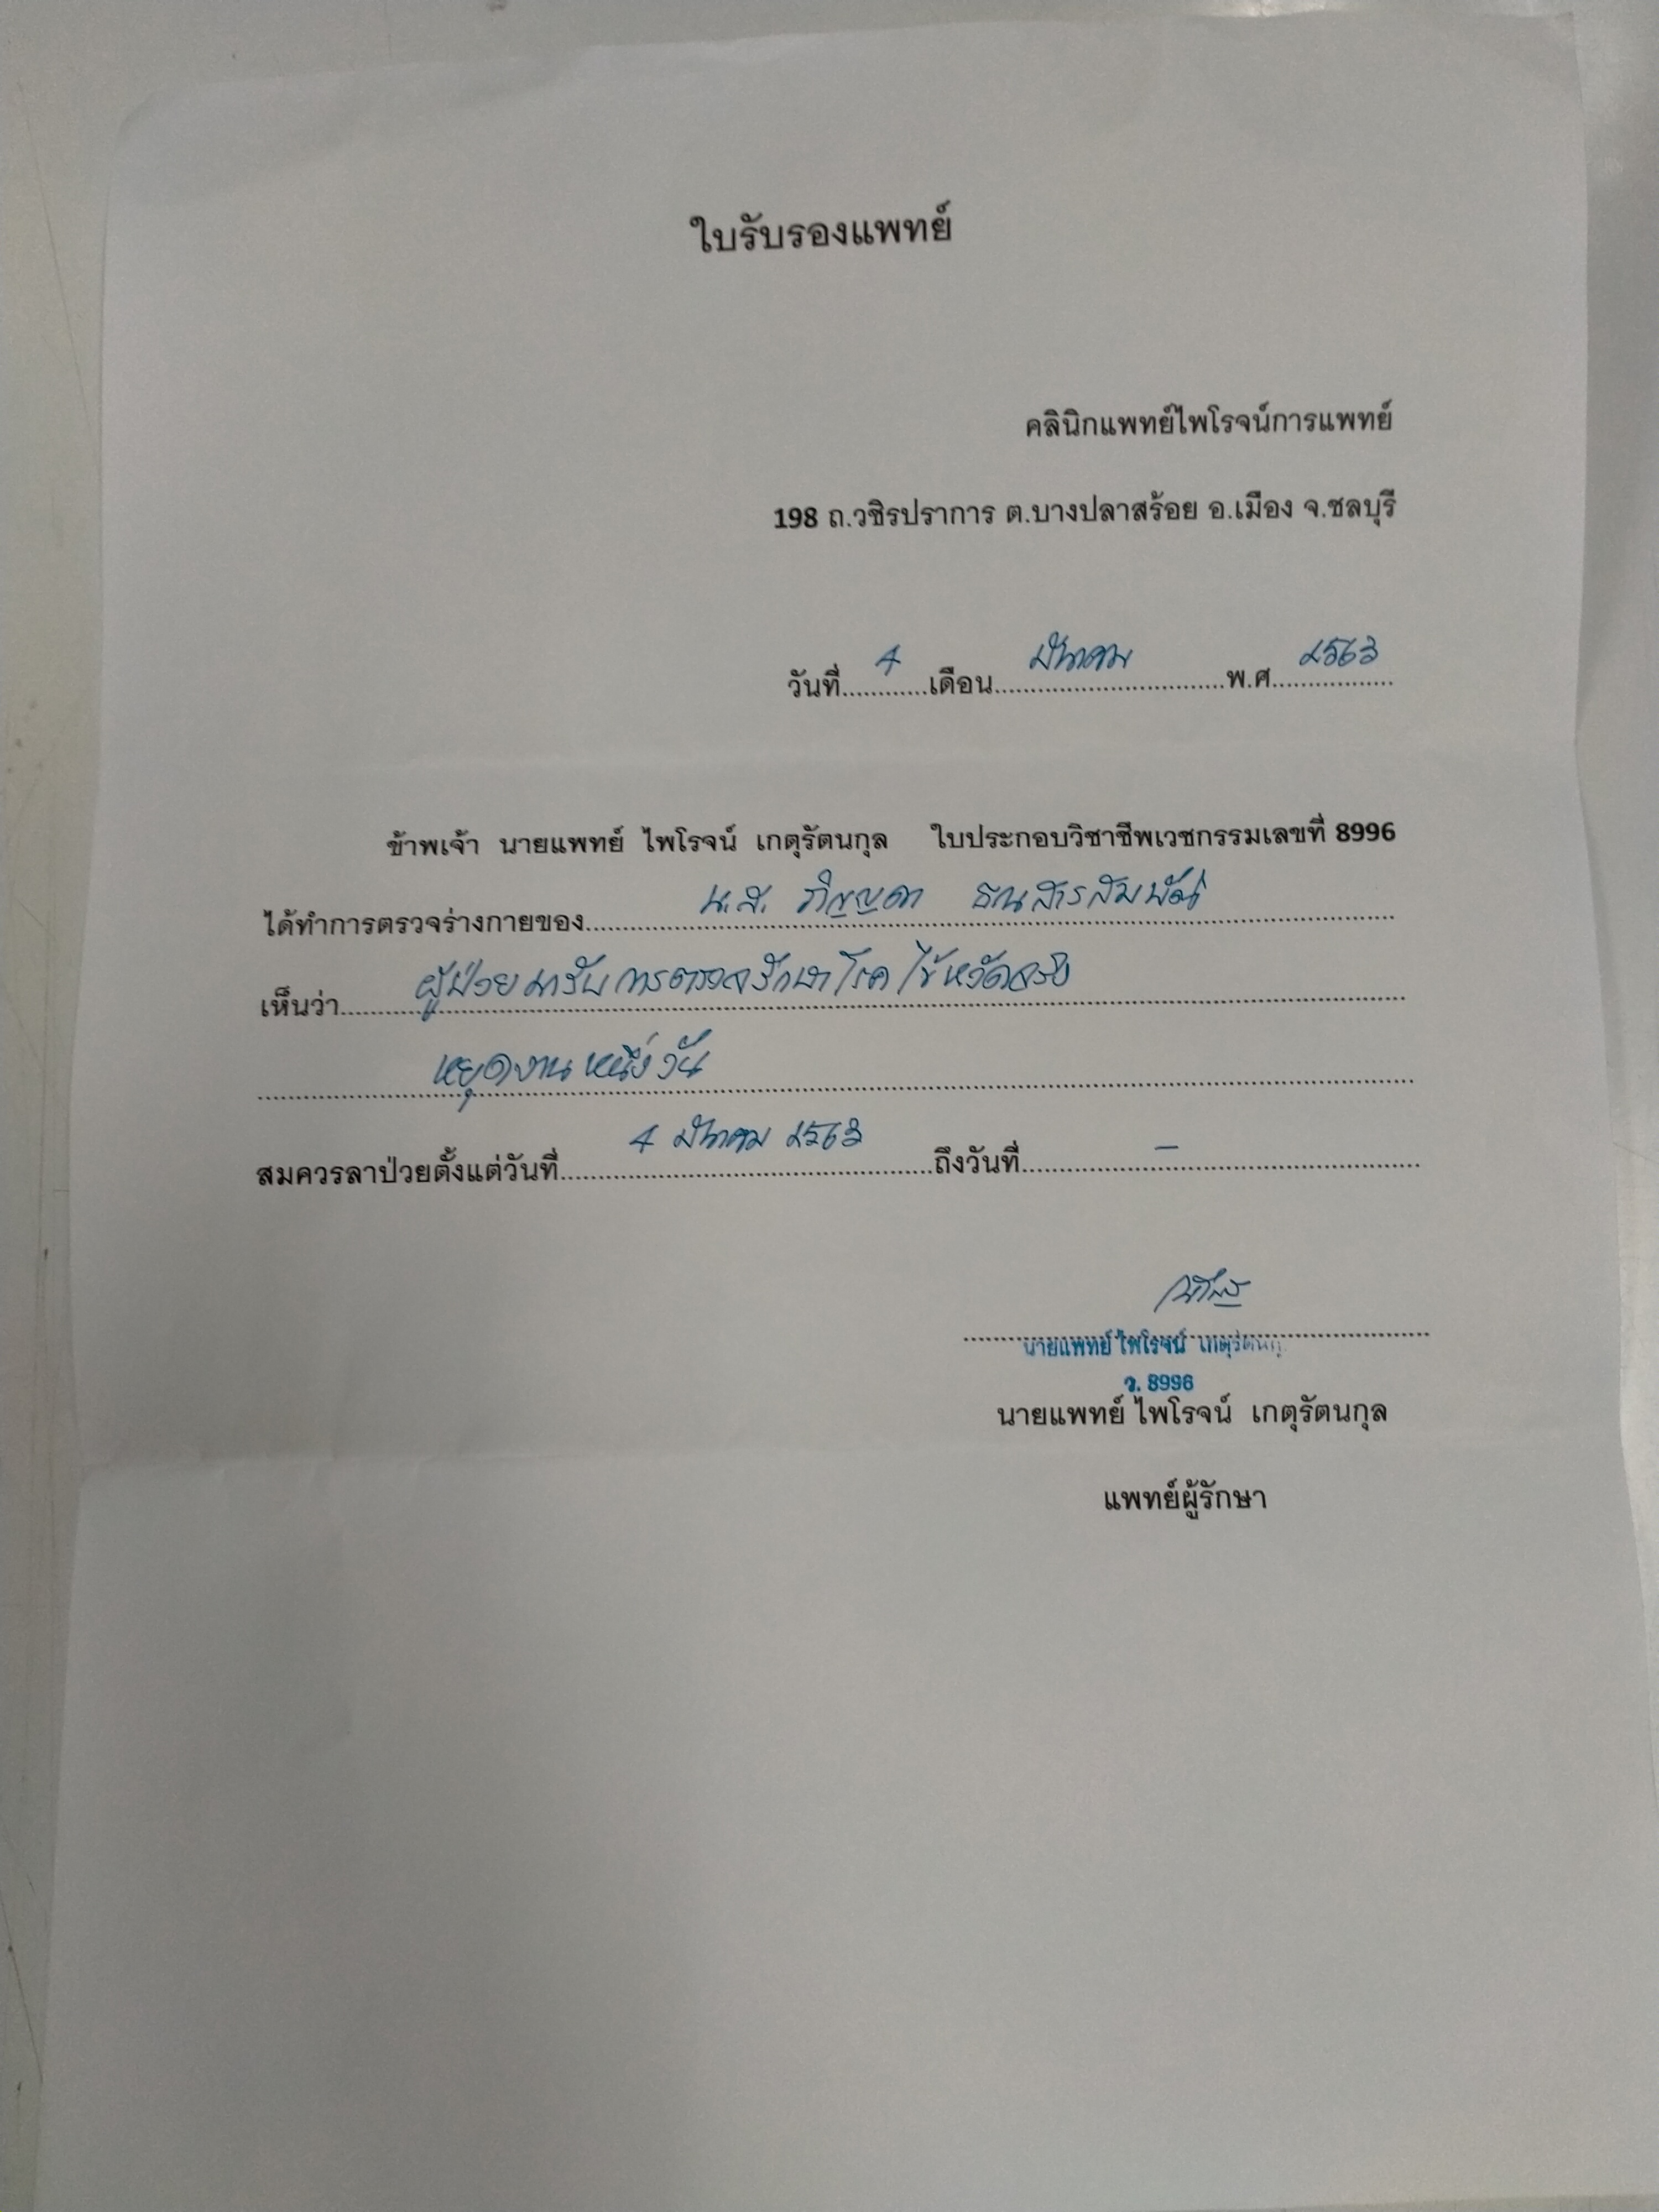 ใบรับรองแพทย์
คลินิกแพทย์ไพโรจน์การแพทย์
198 ถ.วชิรปราการ ต.บางปลาสร้อย อ.เมือง จ.ชลบุรี
วันที่............4............เดือน............มีนาคม............พ.ศ............๒๕๖๓............
ข้าพเจ้า นายแพทย์ ไพโรจน์ เกตุรัตนกุล ใบประกอบวิชาชีพเวชกรรมเลขที่ 8996
ได้ทำการตรวจร่างกายของ............น.ส. ธนสารสมพันธ์............
เห็นว่า............ผู้ป่วยมารับการตรวจรักษาโรคไข้หวัดจริง............
............หยุดงานหนึ่งวัน............
สมควรลาป่วยตั้งแต่วันที่............4 มีนาคม ๒๕๖๓............ถึงวันที่............–............
นายแพทย์ ไพโรจน์ เกตุรัตนกุล
ว. 8996
นายแพทย์ ไพโรจน์ เกตุรัตนกุล
แพทย์ผู้รักษา